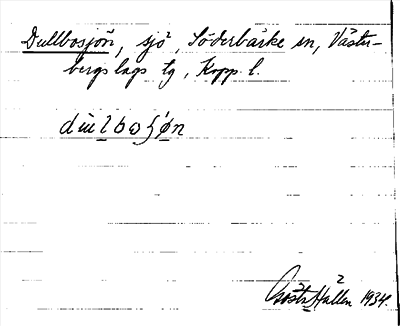 Dullbosjön, sjö, Söderbärke sn, Väster-
bergslags tg, Kopp. l.
Gösta Hallén 1934.